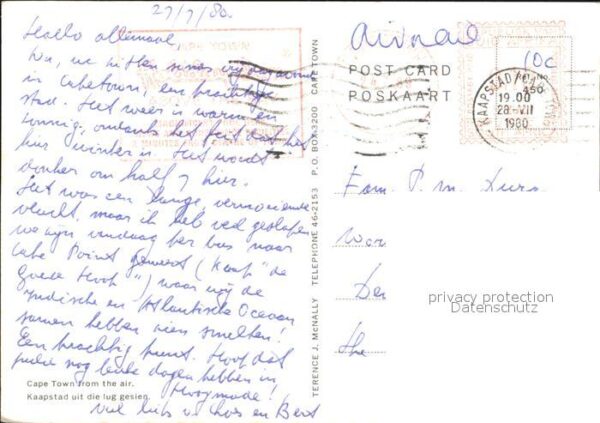 27/7/80.
Hallo allemaal,
Nu, we zitten sinds vrijdagavond
in Capetown, een prachtige
stad. Het weer is warm en
zonnig, ondanks het feit dat het
hier winter is. Het wordt
donker om half 7 hier.
Het was een lange, vermoeiende
vlucht, maar ik heb veel geslapen
we zijn vandaag per bus naar
Cape Point geweest (Kaap "de
Goede Hoop") waar wij de
Indische en Atlantische Oceaan
samen hebben zien smelten!
Een prachtig punt. Hoop dat
jullie nog leuke dagen hebben in
Hoogmade!
Veel liefs v. en Bert
Cape Town from the air.
Kaapstad uit die lug gesien.
TERENCE J. McNALLY TELEPHONE 46-2153 P.O. BOX 3200 CAPE TOWN
Airmail
POST CARD
POSKAART
10c
KAAPSTAD
19.00
28-VII
1980
Fam. P. M.
privacy protection
Datenschutz